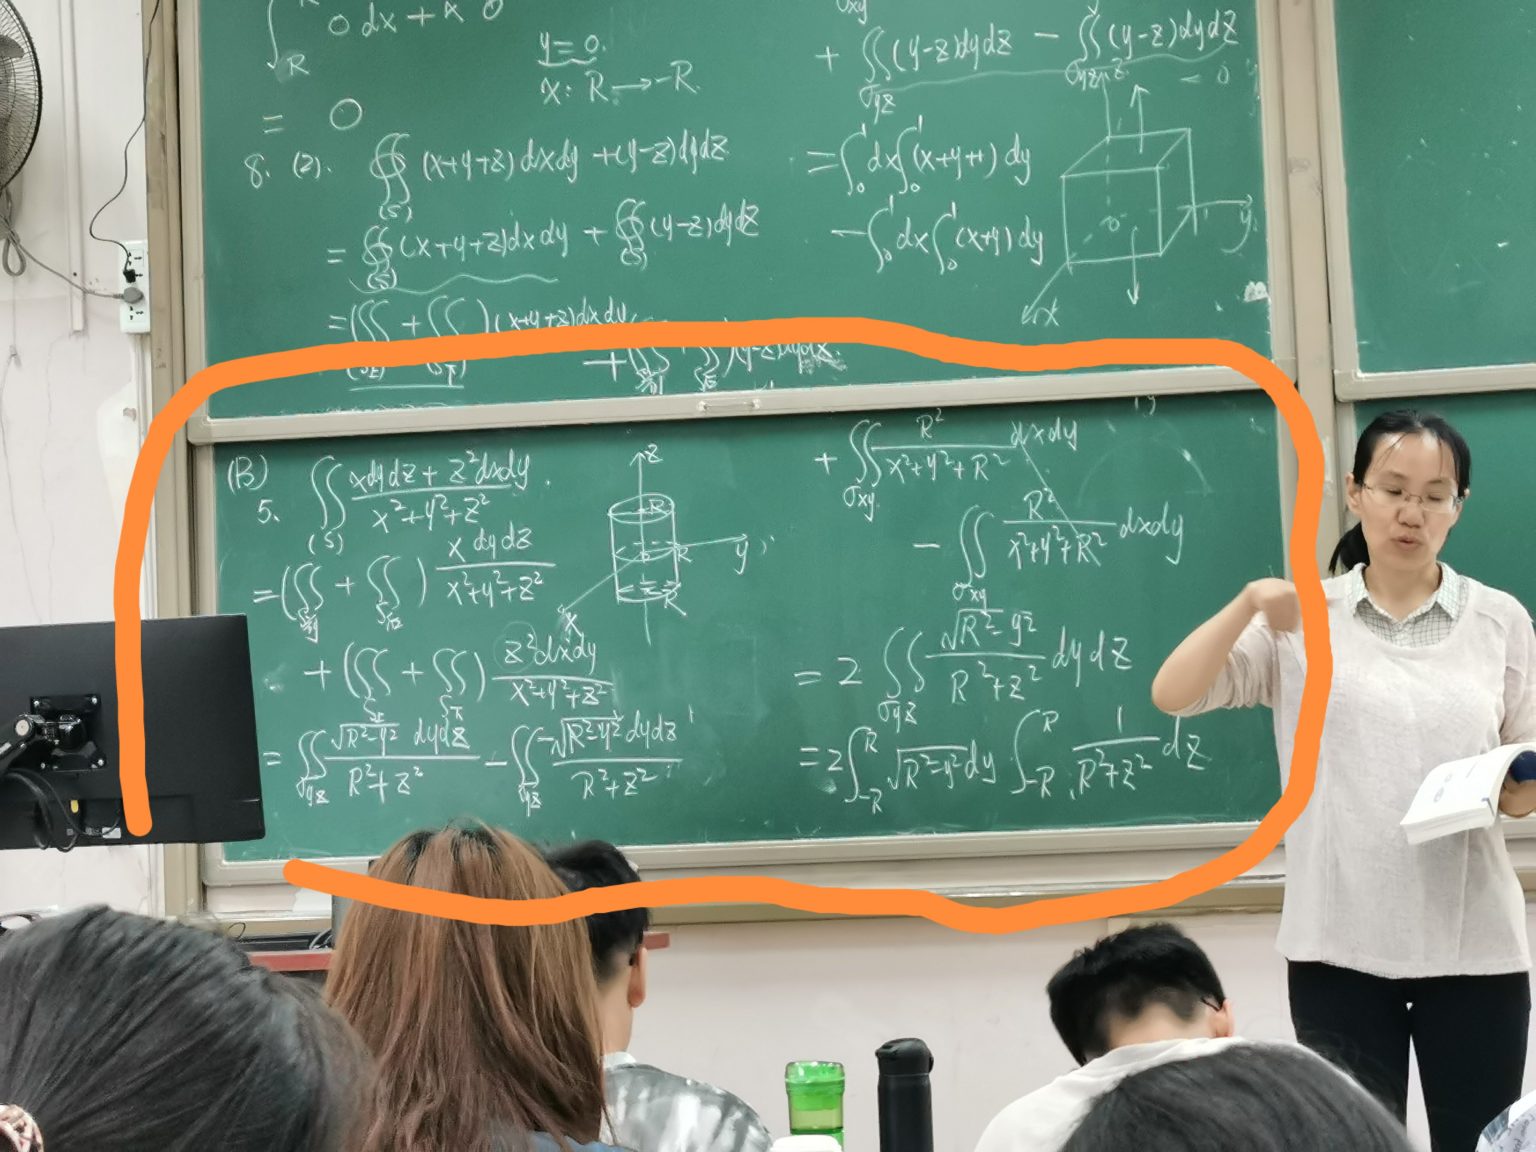 ∫_R 0 dx +
= 0
y = 0.
x: R → -R.
8. (2). ∯_(S) (x+y+z) dxdy + (y-z) dydz
= ∯_(S) (x+y+z) dxdy + ∯_(S) (y-z) dydz
= (∬ + ∬) (x+y+z) dxdy
+ (∬ + ∬) (y-z) dydz.
σxy
+ ∬_σyz (y-z) dydz - ∬_σyz (y-z) dydz
= 0
= ∫_0^1 dx ∫_0^1 (x+y+1) dy
- ∫_0^1 dx ∫_0^1 (x+y) dy
z
0
y
x
(B)
5. ∬_(S) (x dydz + z² dxdy)/(x²+y²+z²).
= (∬ + ∬) (x dydz)/(x²+y²+z²)
+ (∬ + ∬) (z² dxdy)/(x²+y²+z²)
= ∬_σyz (√(R²-y²) dydz)/(R²+z²) - ∬_σyz (-√(R²-y²) dydz)/(R²+z²)
z
R
R
y
-R
x
+ ∬_σxy R²/(x²+y²+R²) dxdy
- ∬_σxy R²/(x²+y²+R²) dxdy
= 2 ∬_σyz √(R²-y²)/(R²+z²) dydz
= 2 ∫_-R^R √(R²-y²) dy ∫_-R^R 1/(R²+z²) dz